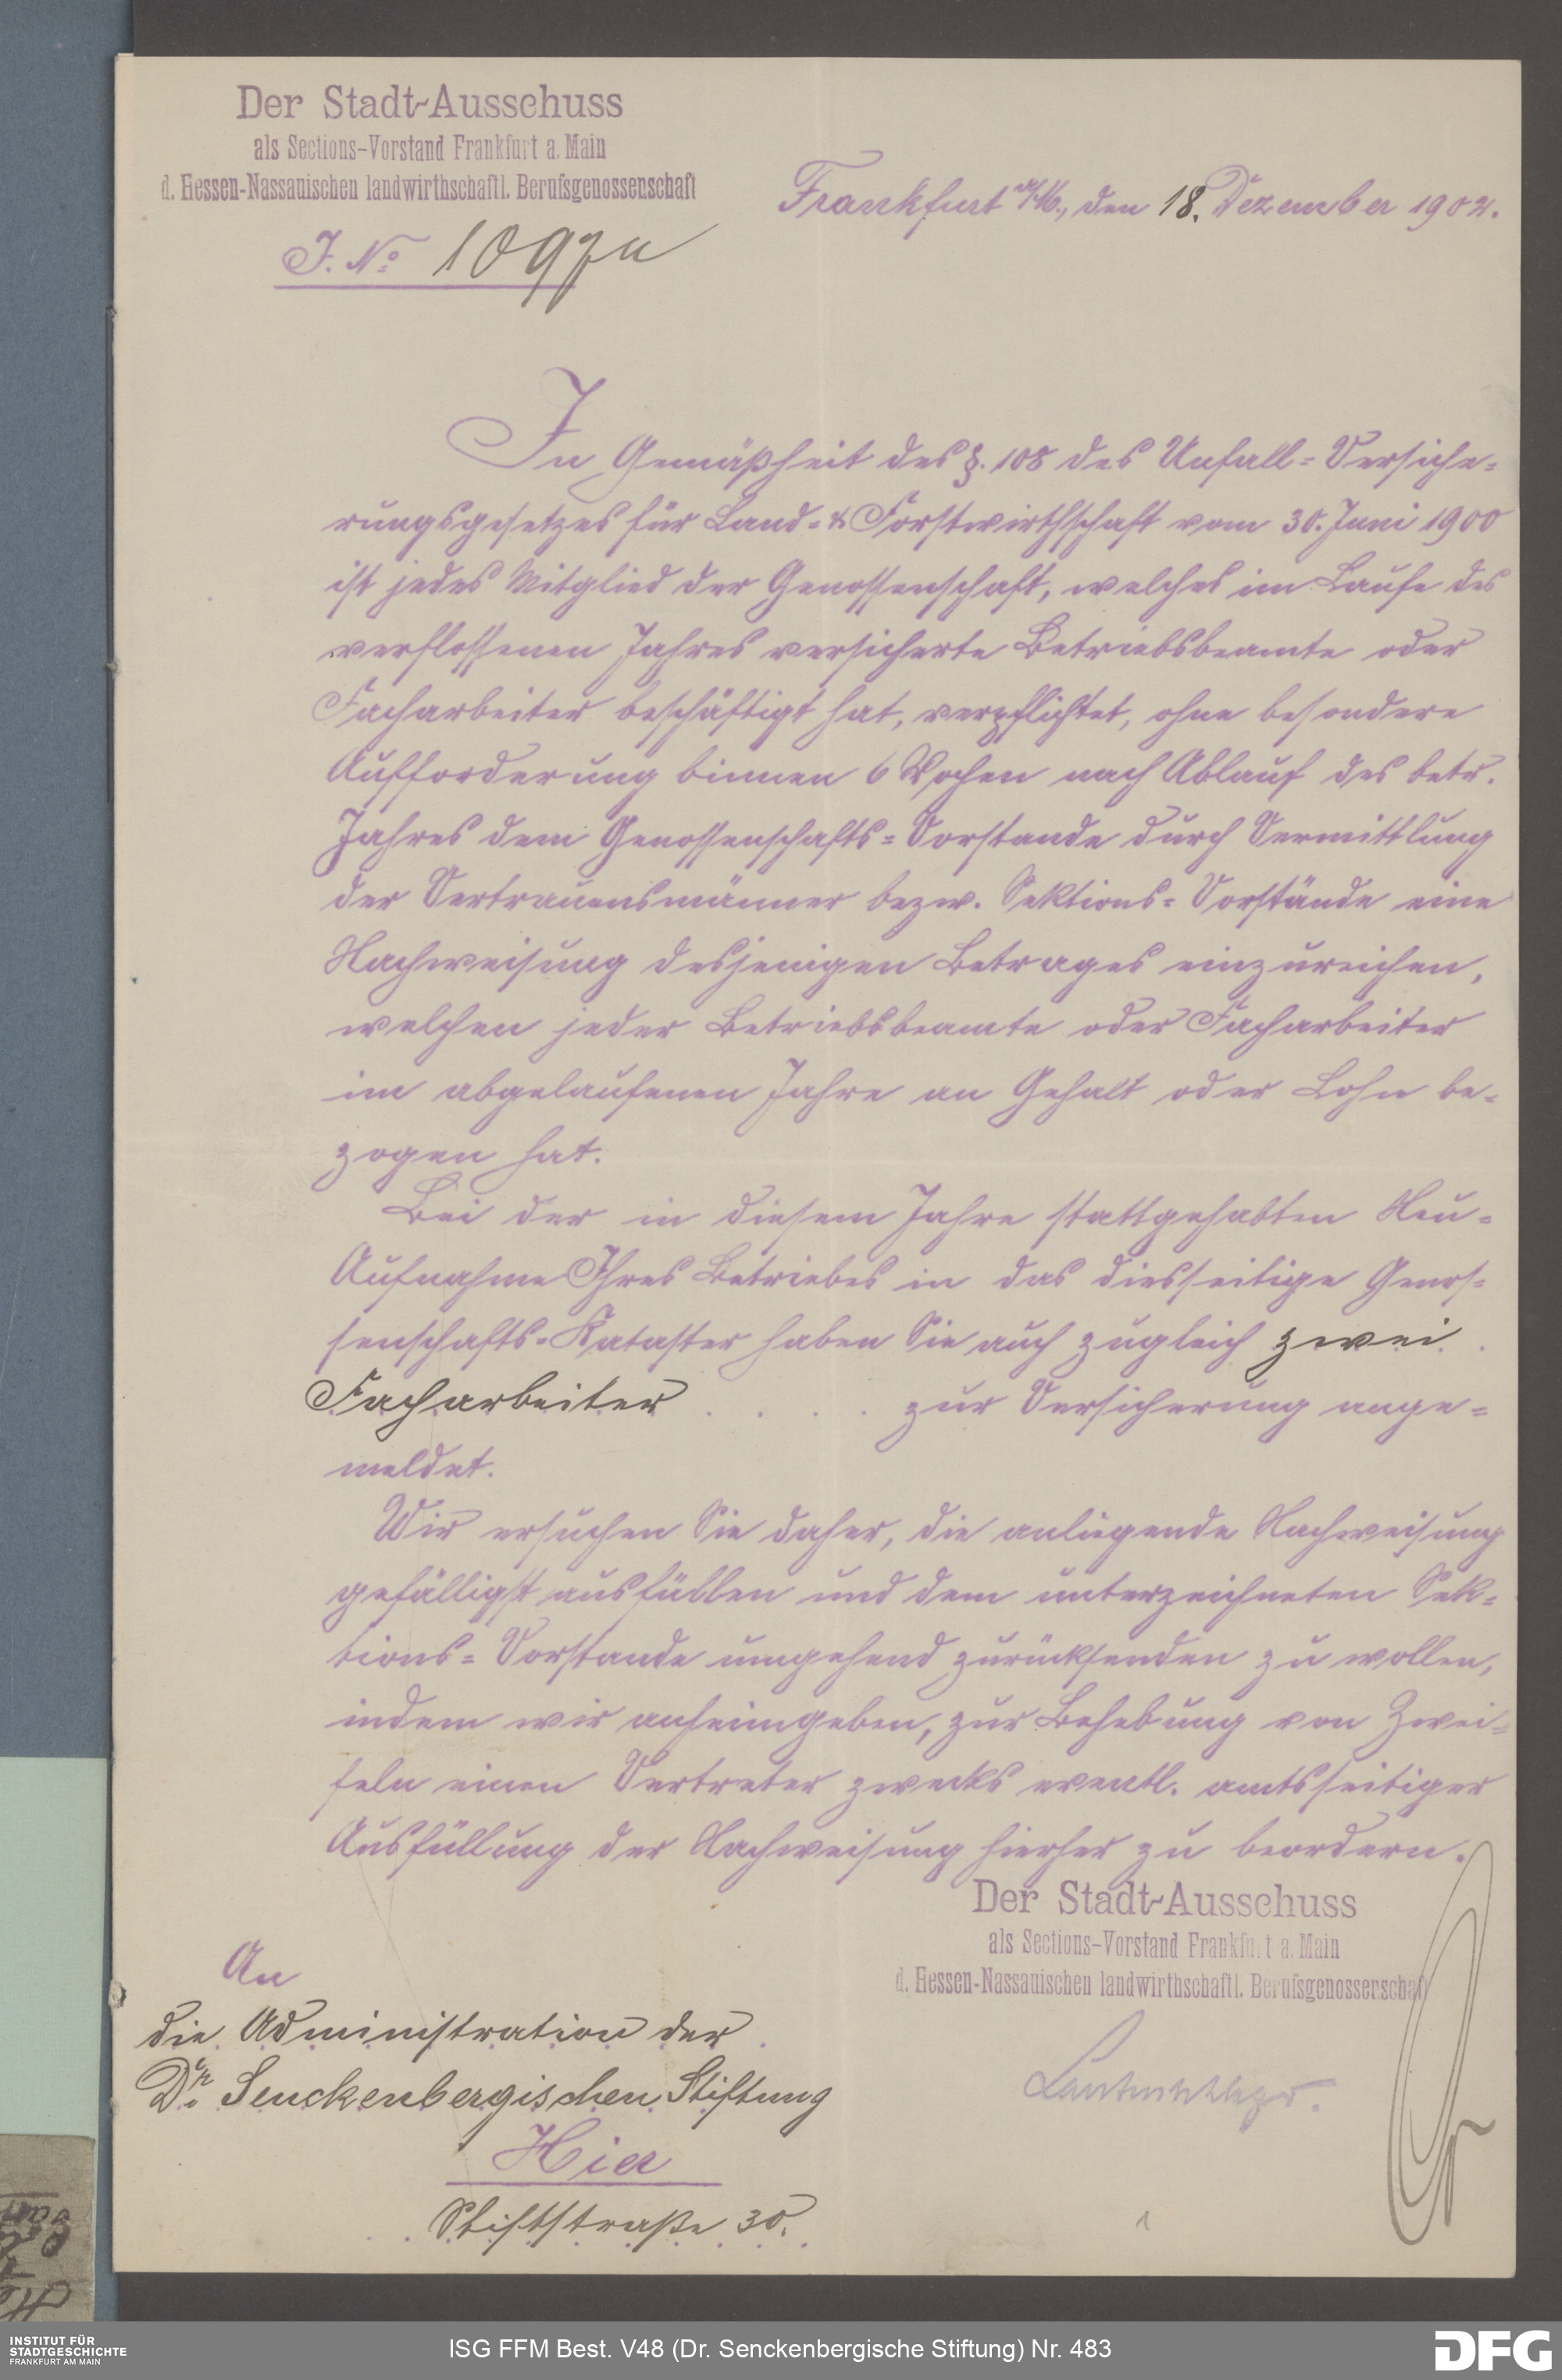 Der Stadt-Ausschuss
als Sections-Vorstand Frankfurt a. Main
d. Hessen-Nassauischen landwirthschaftl. Berufsgenossenschaft
Frankfurt a/M., den 18. Dezember 1902.
J. No.
In Gemäßheit des §. 108 des Unfall-Versiche-
rungsgesetzes für Land- & Forstwirthschaft vom 30. Juni 1900
ist jedes Mitglied der Genossenschaft, welches im Laufe des
verflossenen Jahres versicherte Betriebsbeamte oder
Facharbeiter beschäftigt hat, verpflichtet, ohne besondere
Aufforderung binnen 6 Wochen nach Ablauf des betr.
Jahres dem Genossenschafts-Vorstande durch Vermittlung
der Vertrauensmänner bezw. Sektions-Vorstände eine
Nachweisung desjenigen Betrages einzureichen,
welchen jeder Betriebsbeamte oder Facharbeiter
im abgelaufenen Jahre an Gehalt oder Lohn be-
zogen hat.
Bei der in diesem Jahre stattgehabten Neu-
Aufnahme Ihres Betriebes in das diesseitige Genos-
senschafts-Kataster haben Sie auch zugleich zwei
Facharbeiter zur Versicherung ange-
meldet.
Wir ersuchen Sie daher, die anliegende Nachweisung
gefälligst ausfüllen und dem unterzeichneten Sek-
tions-Vorstande umgehend zurücksenden zu wollen,
indem wir anheimgeben, zur Behebung von Zwei-
feln einen Vertreter zwecks eventl. amtsseitiger
Ausfüllung der Nachweisung hierher zu beordern.
Der Stadt-Ausschuss
als Sections-Vorstand Frankfurt a. Main
d. Hessen-Nassauischen landwirthschaftl. Berufsgenossenschaf
An
die Administration der
Dr. Senckenbergischen Stiftung
Hier
Stiftstraße 30.
INSTITUT FÜR
STADTGESCHICHTE
FRANKFURT AM MAIN
ISG FFM Best. V48 (Dr. Senckenbergische Stiftung) Nr. 483
DFG